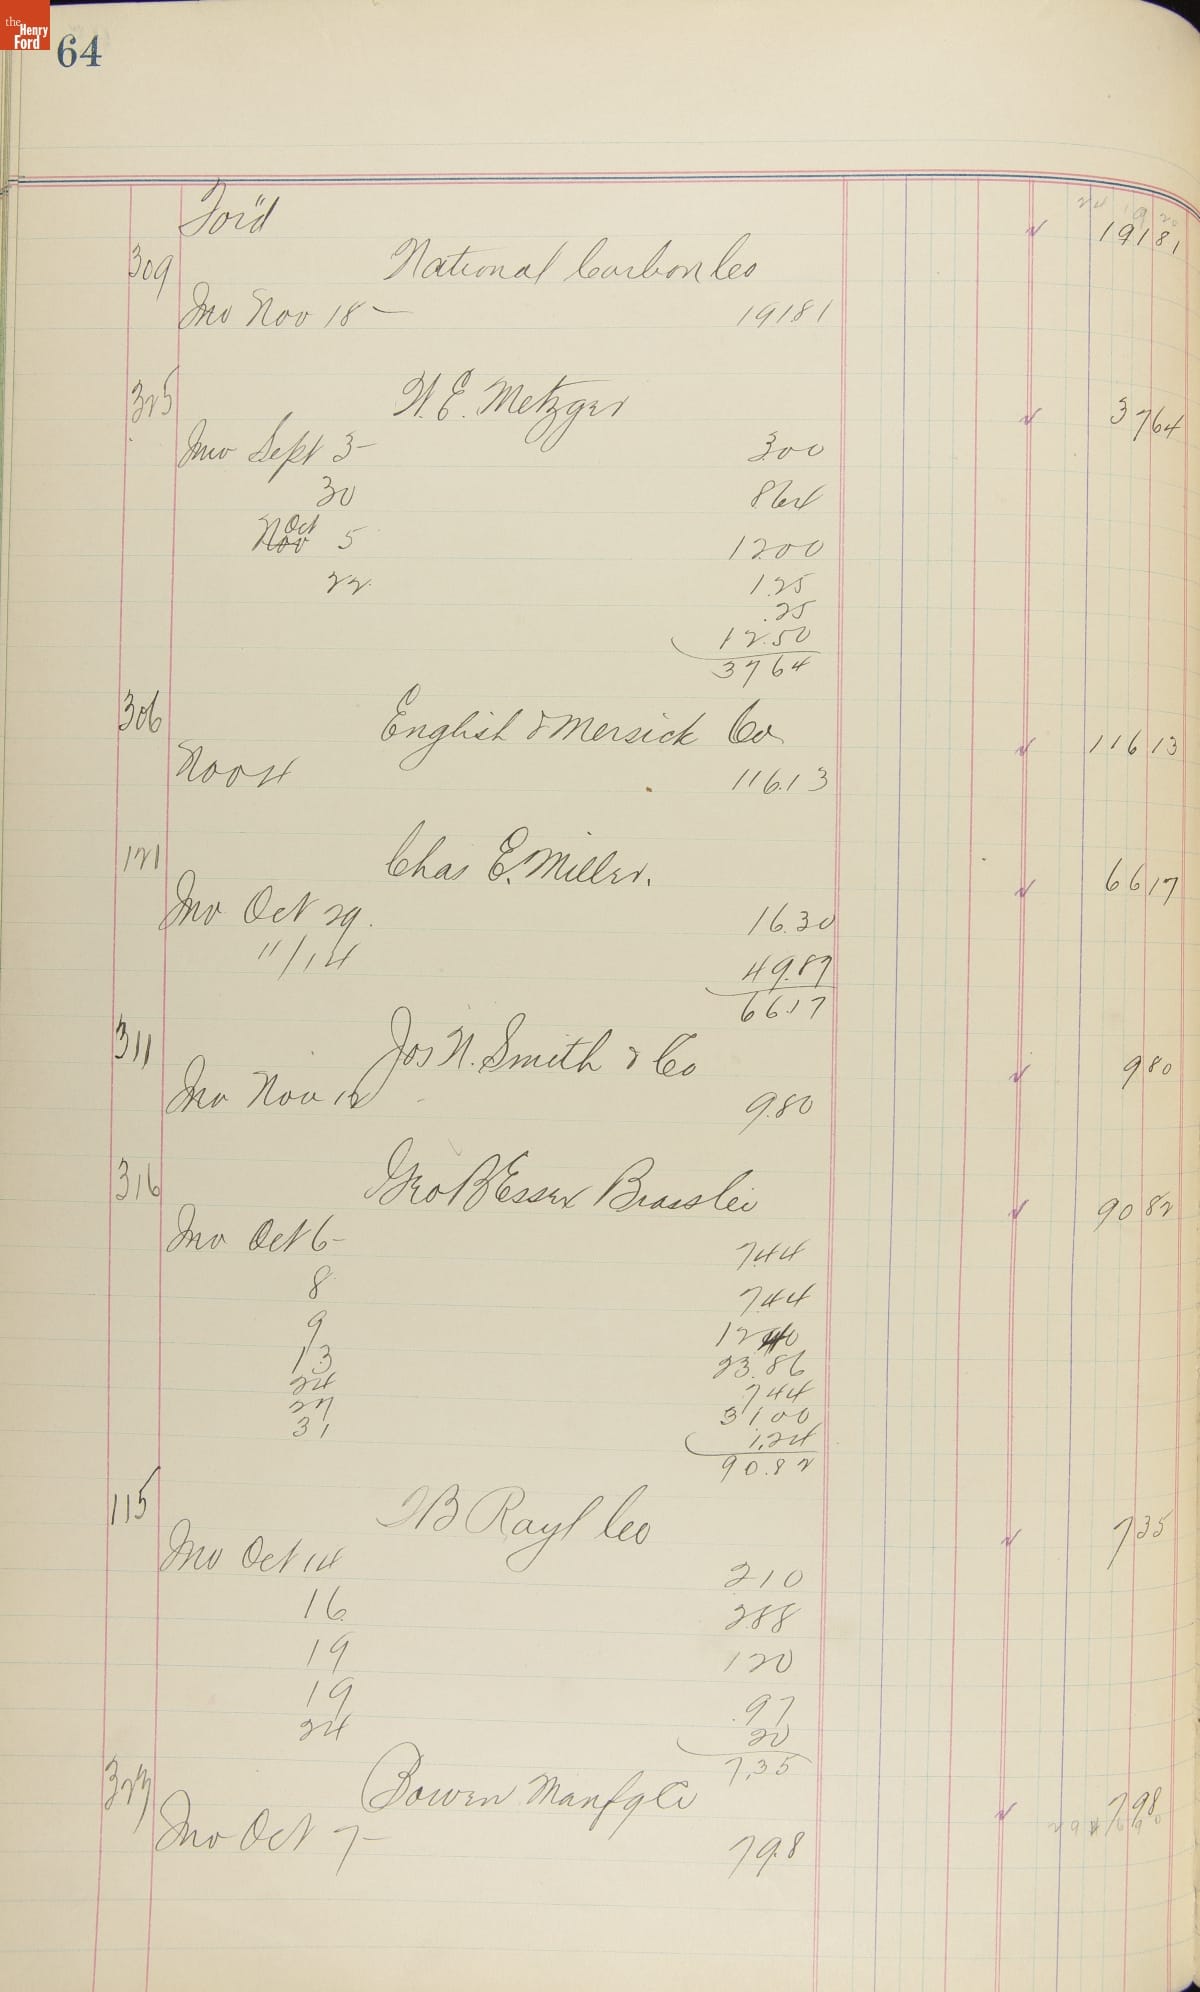 the
Henry
Ford
64
For'd
19181
309 National Carbon Co
Inv Nov 18 – 19181
325 W. E. Metzger 3764
Inv Sept 3 – 3.00
30 8.64
Nov Oct 5 12.00
22 1.25
.25
12.50
3764
306 English & Mersick Co 11613
Nov 4 116.13
121 Chas E. Miller. 6617
Inv Oct 29. 16.30
11/14 49.87
66.17
311 Jos N. Smith & Co 980
Inv Nov 12 9.80
316 Geo B Essex Brass Co 9082
Inv Oct 6 – 7.44
8 7.44
9 12 40
13 23.86
24 7 44
27 31 00
31 1.24
90.82
115 T B Rayl Co 735
Inv Oct 14 210
16 2.88
19 120
19 .97
24 20
7.35
323 Bowen Manfg Co 798
Inv Oct 7 – 79.8